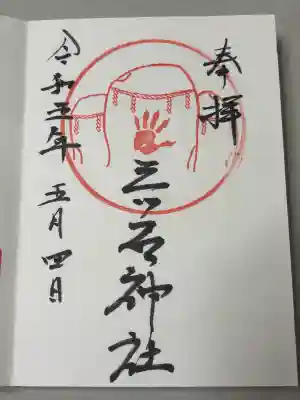 奉拝
三ツ石神社
令和五年
五月四日